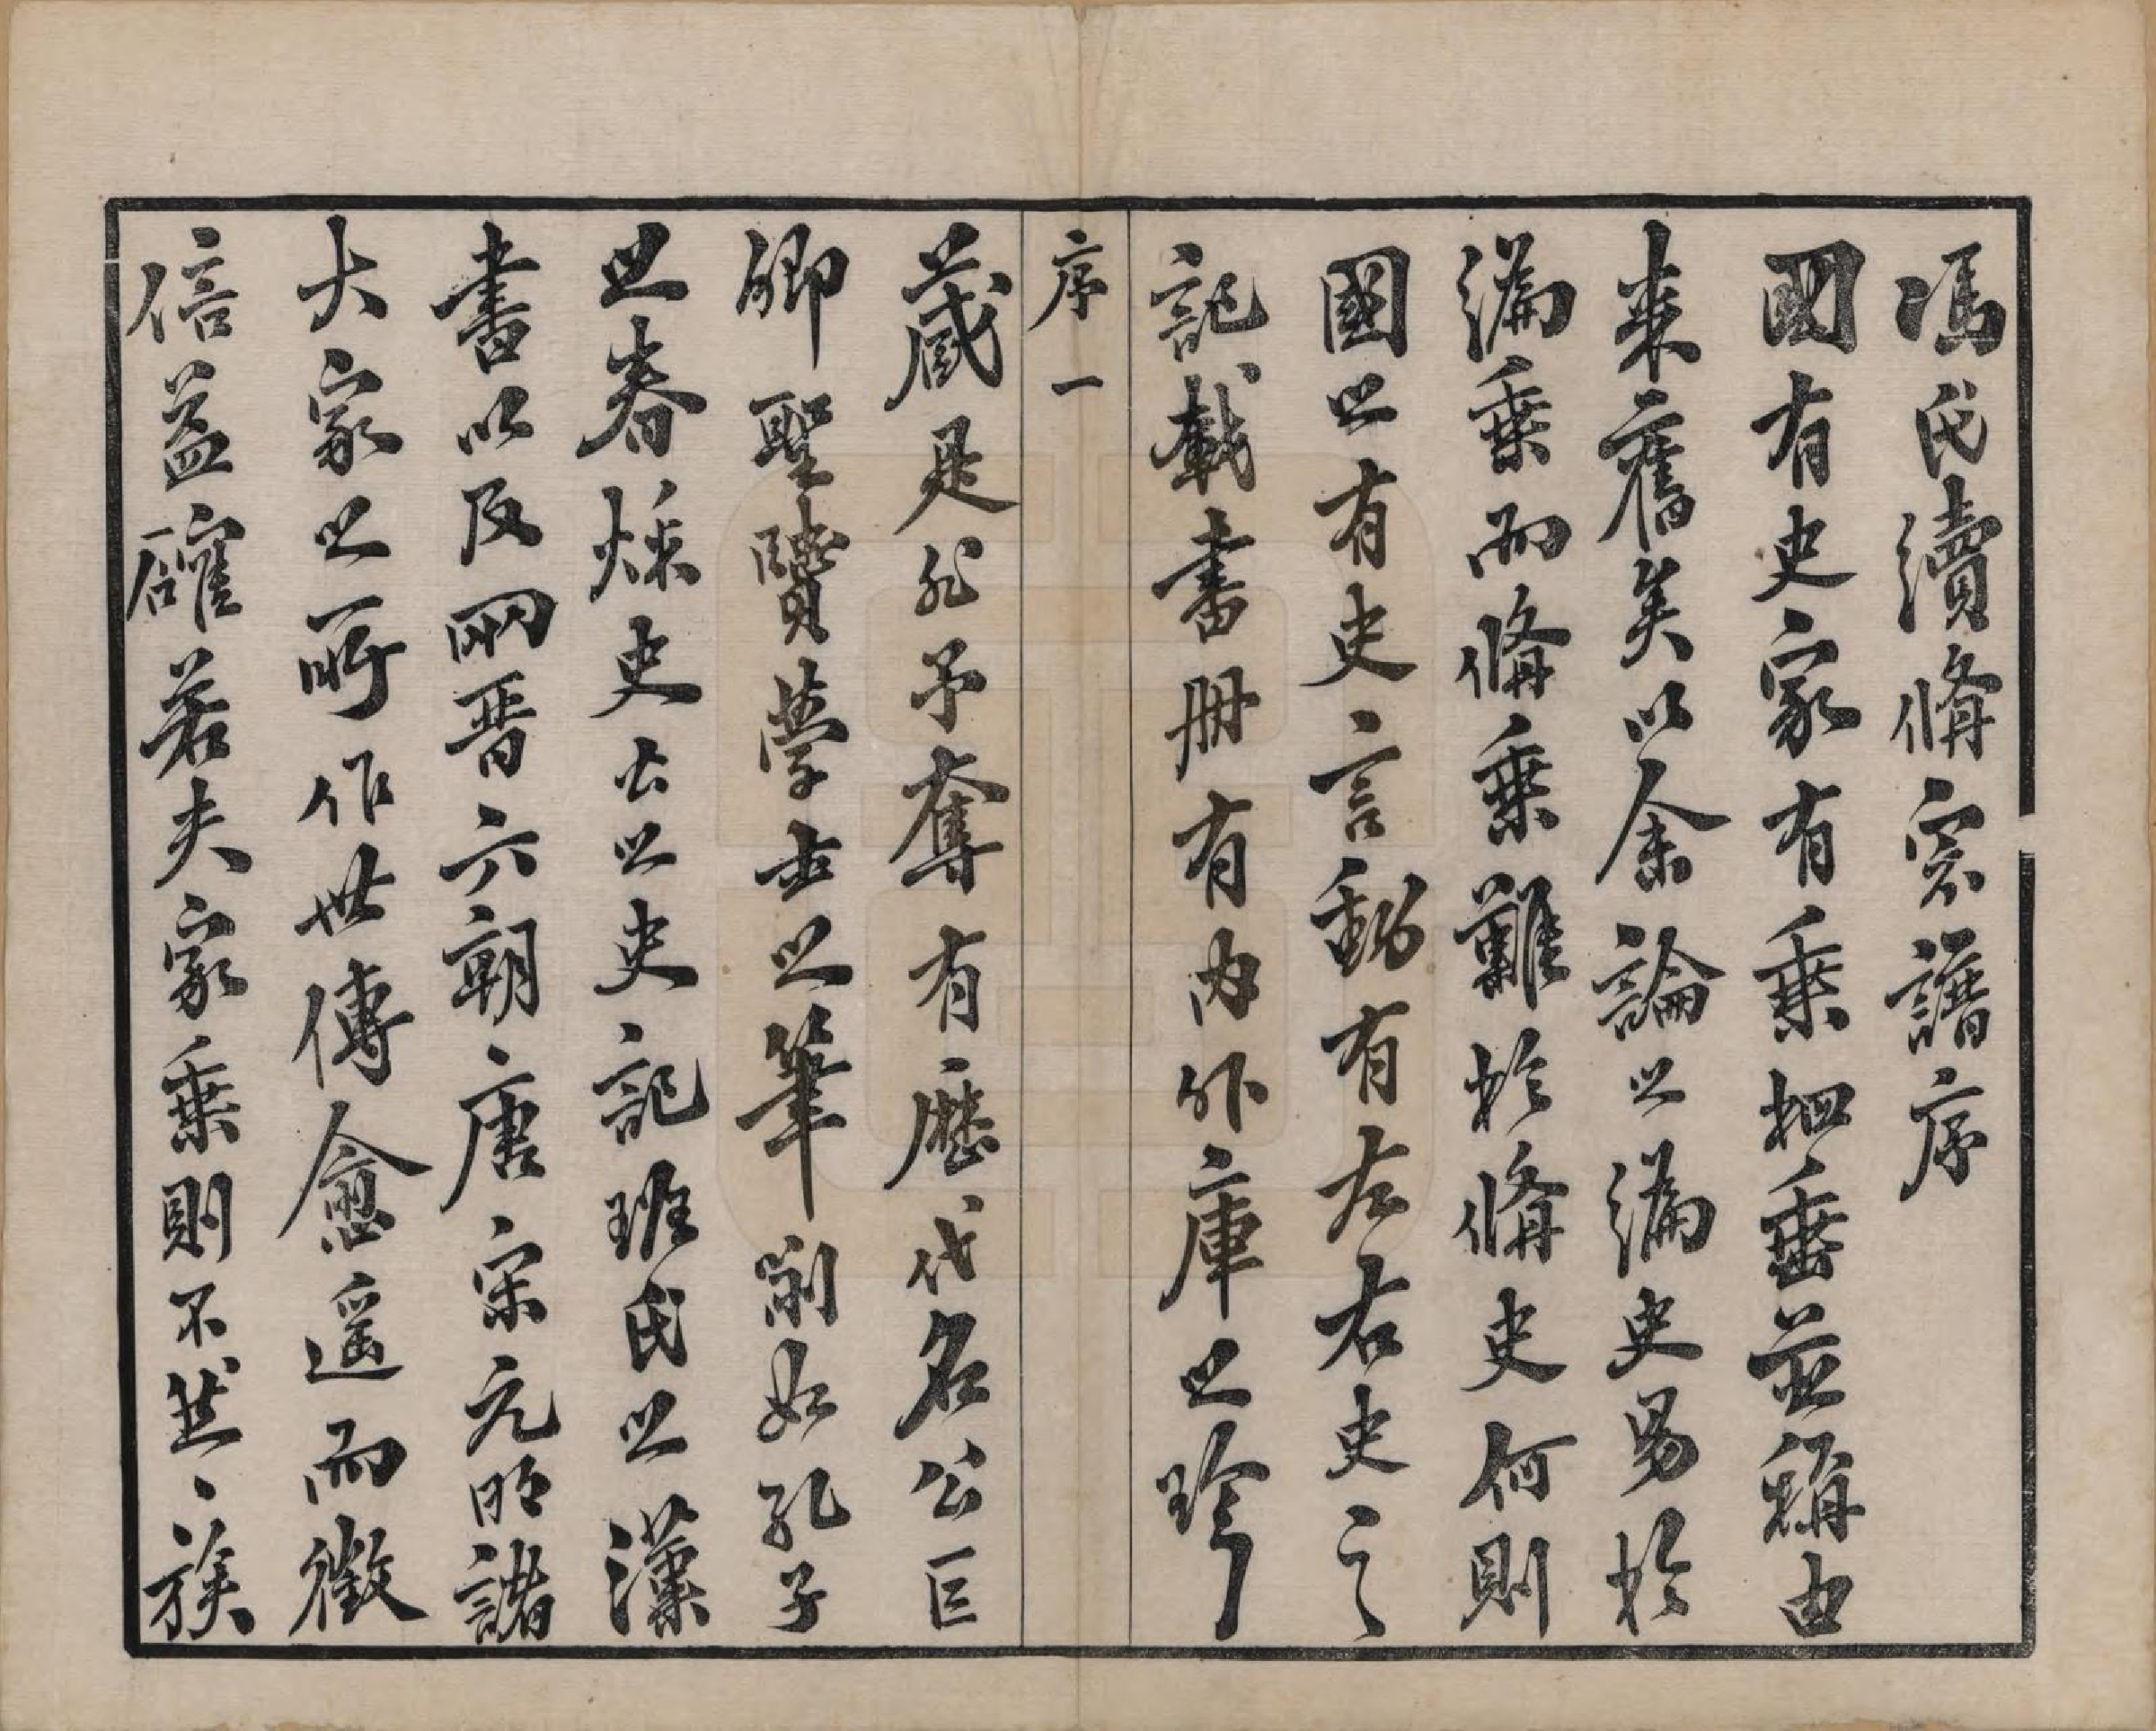 馮氏續脩宗譜序
國有史家有乗栶垂並稱由
來舊矣以余論之編史易於
編乗而脩乗難於脩史何則
國之有史言動有左右史之
記載書册有内外庫之珍
序一
藏是非予奪有歷代名公巨
卿聖賢學士之筆削如孔子
之春烁史公之史記班氏之漢
書以及兩晋六朝唐宋元明諸
大家之所作世傳愈遥而徵
信益確若夫家乗則不然、族